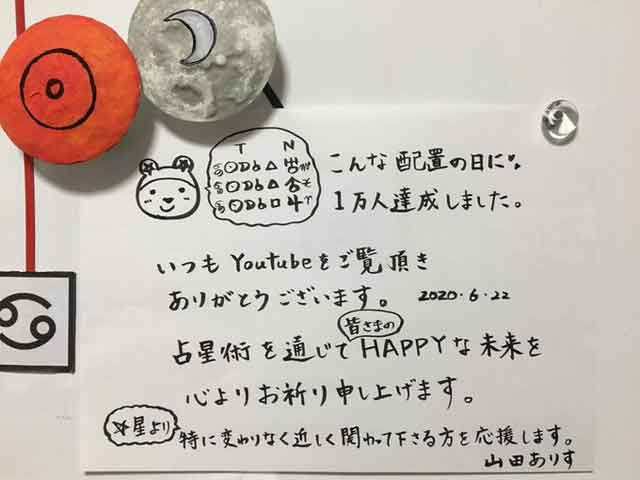 T N
こんな配置の日に
1万人達成しました。
いつもYoutubeをご覧頂き
ありがとうございます。 2020.6.22
皆さまの
占星術を通じてHAPPYな未来を
心よりお祈り申し上げます。
☆星より
特に変わりなく近しく関わって下さる方を応援します。
山田ありす